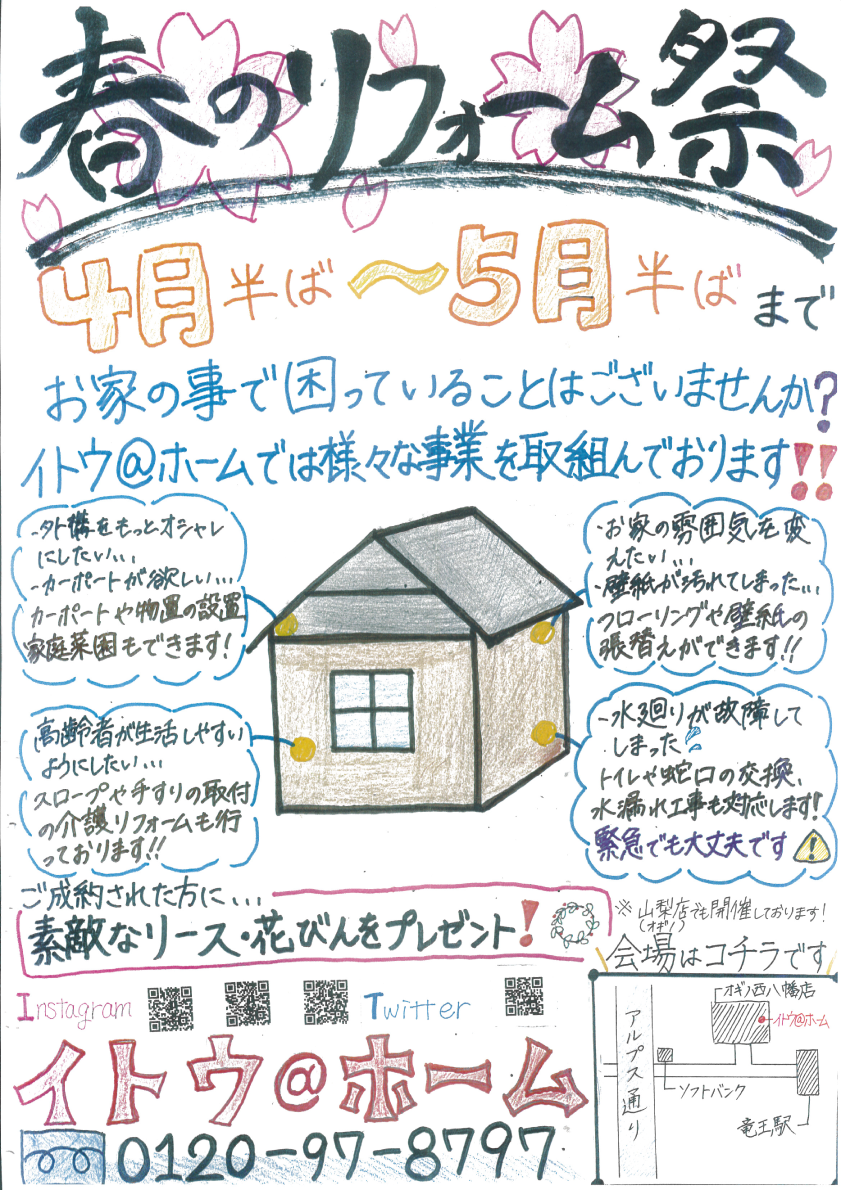 春のリフォーム祭
4月半ば〜5月半ばまで
お家の事で困っていることはございませんか?
イトウ@ホームでは様々な事業を取組んでおります!!
・外構をもっとオシャレ
にしたい...
・カーポートが欲しい...
カーポートや物置の設置
家庭菜園もできます!
・お家の雰囲気を変
えたい...
・壁紙が汚れてしまった...
フローリングや壁紙の
張替えができます!!
高齢者が生活しやすい
ようにしたい...
スロープや手すりの取付
の介護リフォームも行
っております!!
・水廻りが故障して
しまった
トイレや蛇口の交換、
水漏れ工事も対応します!
緊急でも大丈夫です
ご成約された方に...
素敵なリース・花びんをプレゼント!
※山梨店でも開催しております!
(オギノ)
会場はコチラです
Instagram
Twitter
オギノ西八幡店
イトウ@ホーム
アルプス通り
ソフトバンク
竜王駅
イトウ@ホーム
0120-97-8797